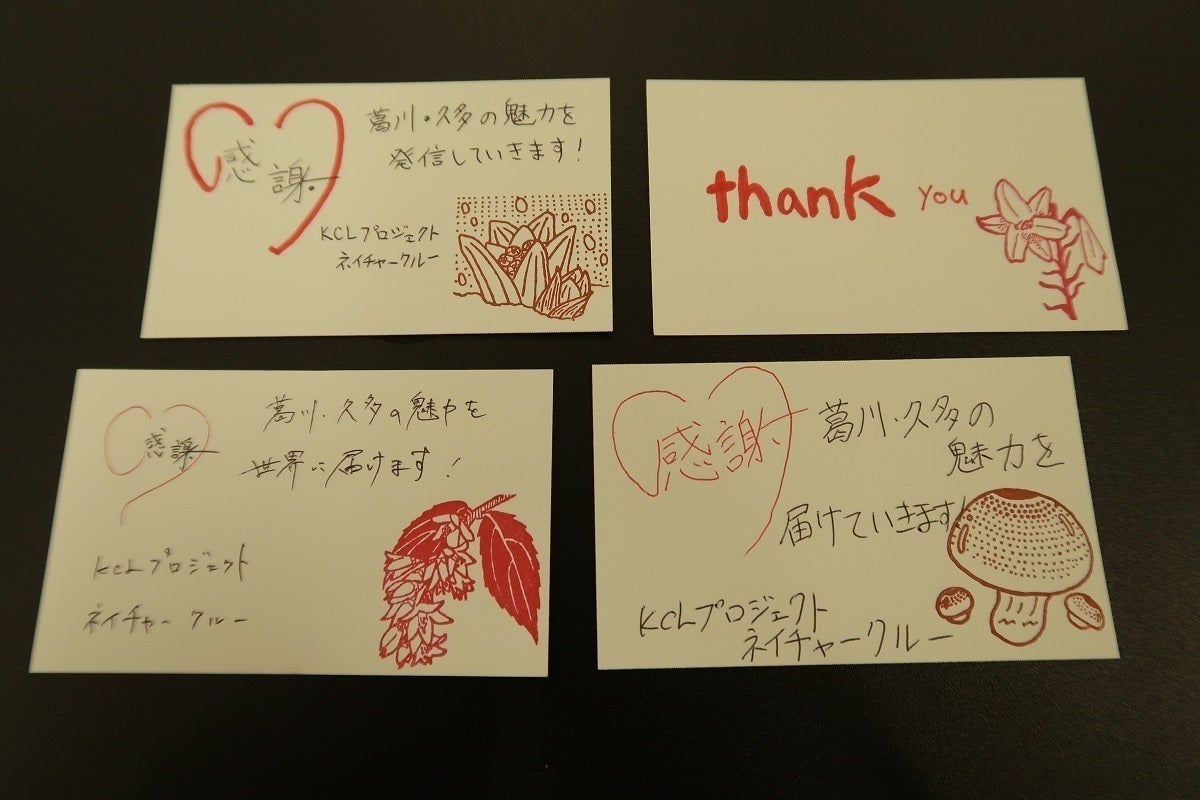 感謝
葛川・久多の魅力を
発信していきます！
KCLプロジェクト
ネイチャークルー
thank you
感謝
葛川・久多の魅力を
世界に届けます！
KCLプロジェクト
ネイチャークルー
感謝
葛川・久多の
魅力を
届けていきます！
KCLプロジェクト
ネイチャークルー